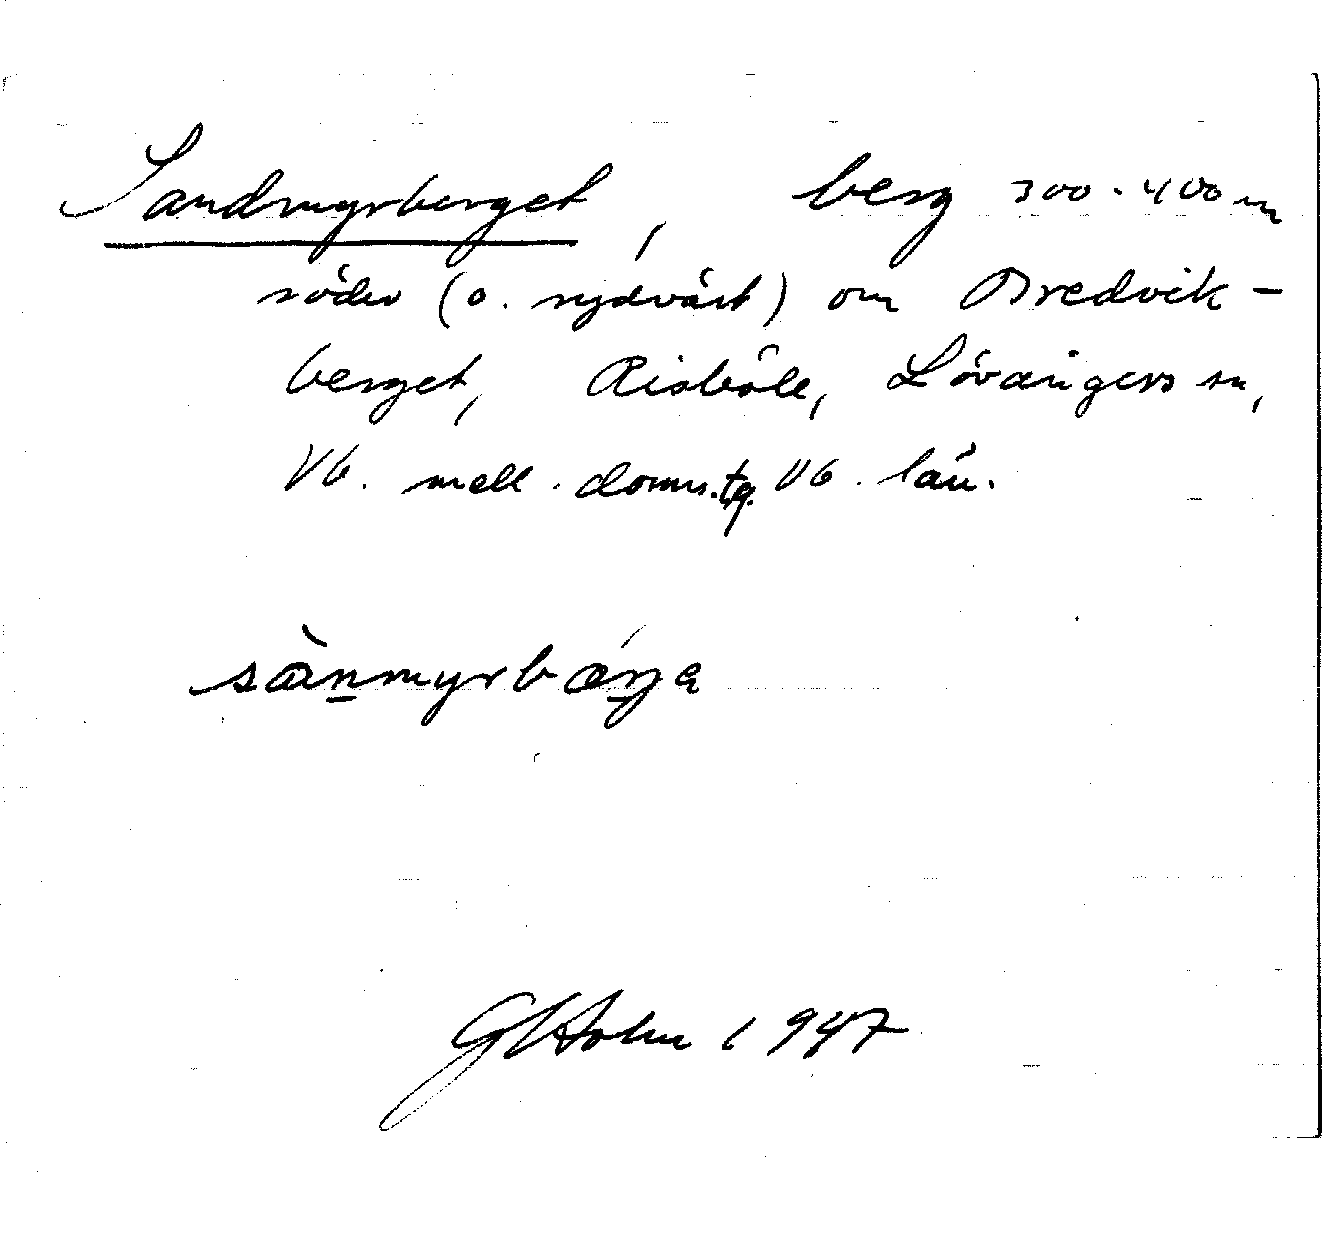 Sandmyrberget, berg 300-400 m
söder (o. sydväst) om Bredvik-
berget, Risböle, Lövångers sn,
Vb. mell. doms.tg. Vb. län.
sànmyrbǽrjа
GHolm 1947